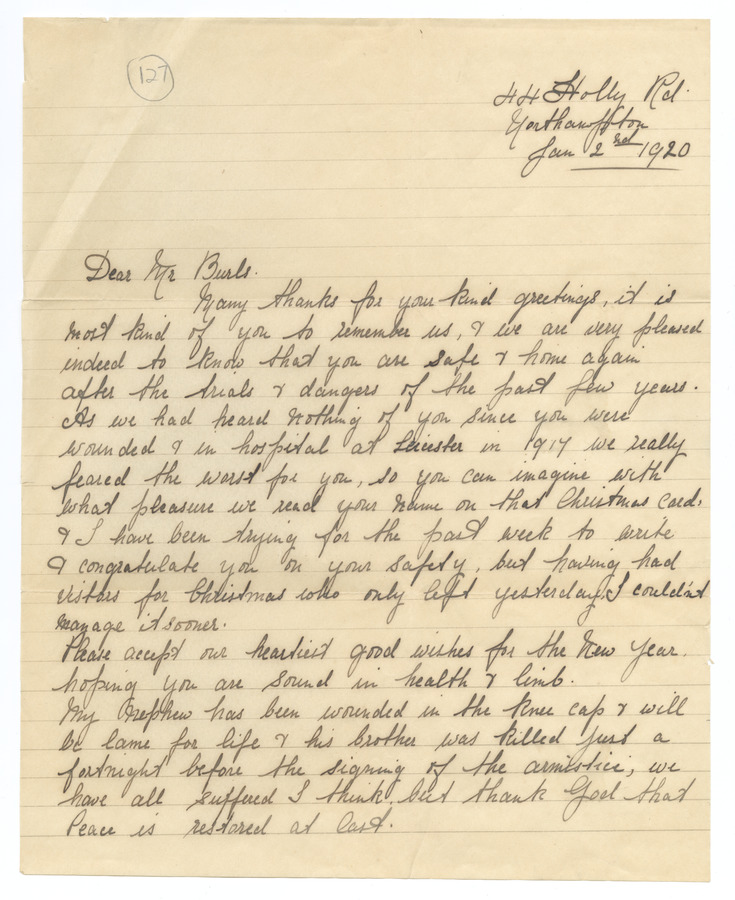 127
44 Holly Rd.
Northampton
Jan 2nd 1920
Dear Mr Burls.
Many thanks for your kind greetings, it is
most kind of you to remember us, & we are very pleased
indeed to know that you are safe & home again
after the trials & dangers of the past few years.
As we had heard nothing of you since you were
wounded & in hospital at Leicester in 1917 we really
feared the worst for you, so you can imagine with
what pleasure we read your name on that Christmas Card.
& I have been trying for the past week to write
& congratulate you on your safety, but having had
visitors for Christmas who only left yesterday I couldn't
manage it sooner.
Please accept our heartiest good wishes for the New Year.
hoping you are sound in health & limb.
My Nephew has been wounded in the knee cap & will
be lame for life & his brother was killed just a
fortnight before the signing of the armistice, we
have all suffered I think, but thank God that
Peace is restored at last.